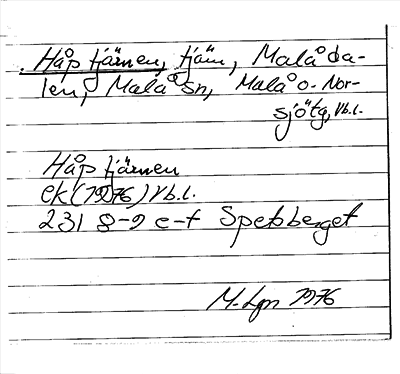 Håptjärnen, tjärn, Malåda-
len, Malå sn, Malå o. Nor-
sjö tg, Vb.l.
Håptjärnen
ek (1976) Vb.l.
231 8-9 e-f Spetsberget
M-Lgn 1976